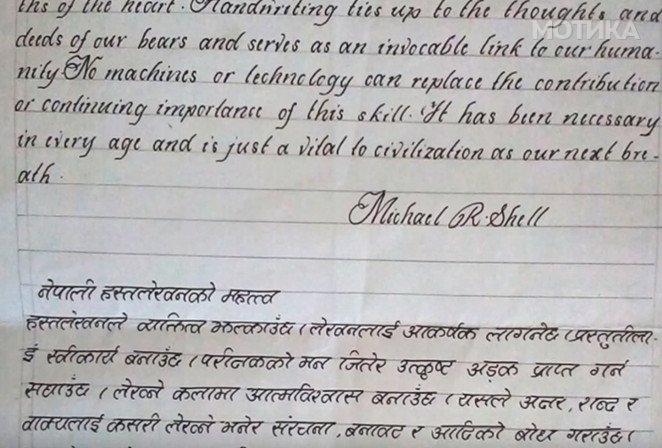 ths of the heart. Handwriting ties up to the thoughts and
МОТИКА
deeds of our bears and serves as an invocable link to our huma-
nity No machines or technology can replace the contribution
or continuing importance of this skill. It has been necessary
in every age and is just a vital to civilization as our next bre-
ath.
Michael R. Shell
नेपाली हस्तलेखनको महत्त्व
हस्तलेखनले व्यक्तित्व झल्काउँछ। लेखनलाई आकर्षक लाग्नेछ। प्रस्तुतीला-
ई स्वीकार्य बनाउँछ। परीक्षकको मन जितेर उत्कृष्ट अङ्क प्राप्त गर्न
सघाउँछ। लेख्ने कलामा आत्मविश्वास बनाउँछ। यसले अक्षर, शब्द र
वाक्यलाई कसरी लेख्ने भनेर संरचना, बनावट र आदिको बोध गराउँछ।